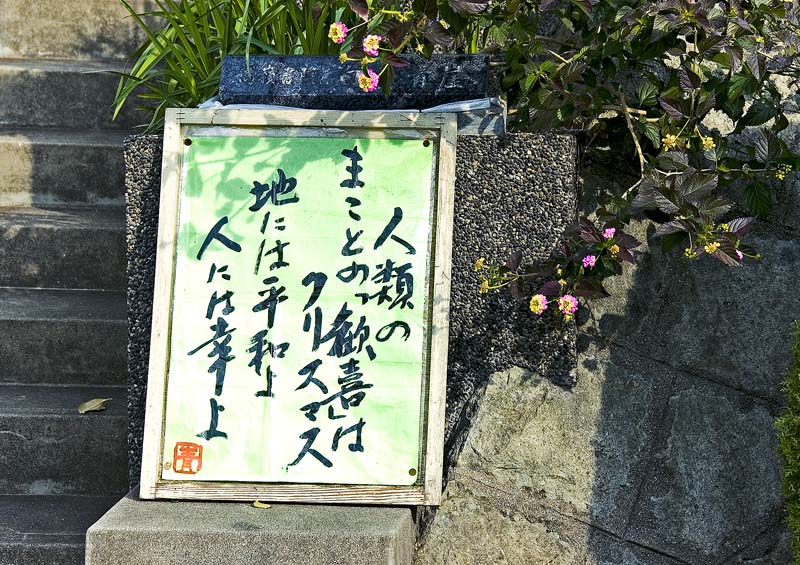 人類の
まことの「歓喜」は
クリスマス
地には平和を
人には幸を